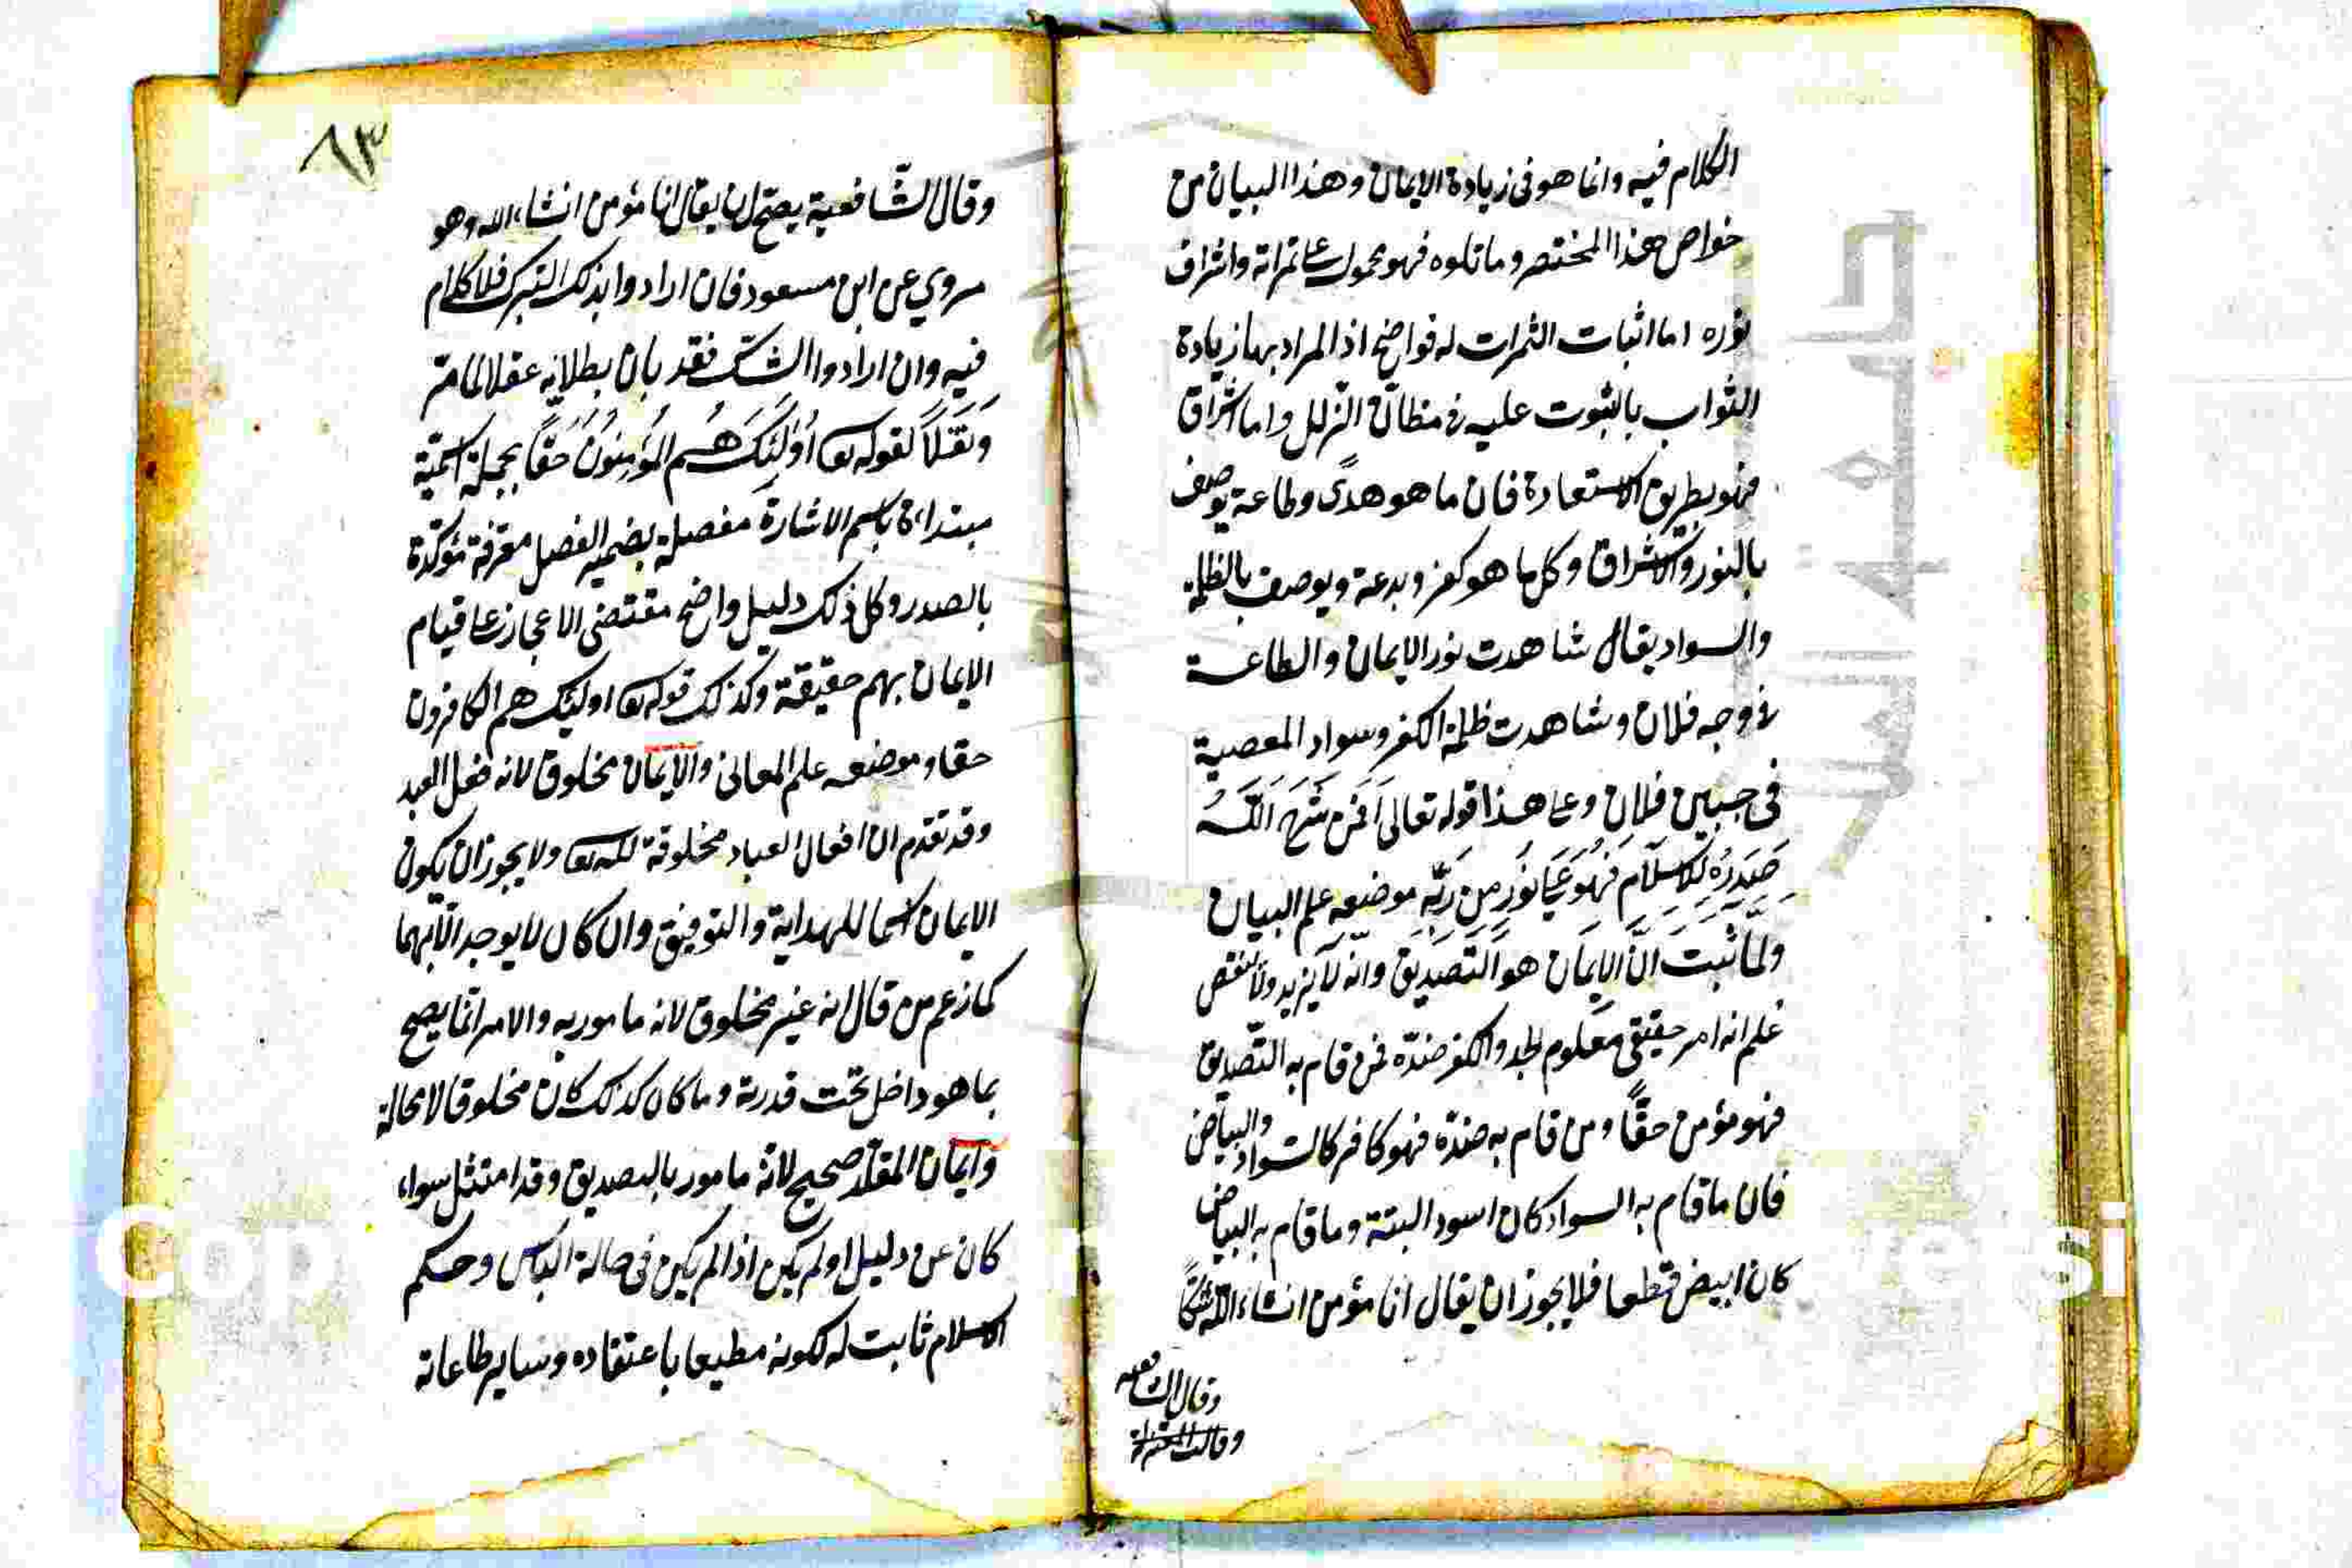 الكلام فيه وانما هو فى زيادة الايمان وهذا البيان من
خواص هذا المختصر وما تلوه فهو محمول على ثمراته واشراف
نوره اما اثبات الثمرات له فواضح اذ المراد بها زيادة
الثواب بالثبوت عليه فى مظانّ الزلل واما اشراق
فهو بطريق الاستعارة فان ما هو هدًى وطاعة يوصف
بالنور والاشراق وكل ما هو كفر وبدعة ويوصف بالظلمة
والسواد يقال شاهدت نور الايمان والطاعة
فى وجه فلان وشاهدت ظلمة الكفر وسواد المعصية
فى جبين فلان وعلى هذا قوله تعالى اَفَمَن شَرَحَ اَللّٰهُ
صَدْرَهُ لِلْاِسْلَامِ فَهُوَ عَلَى نُورٍ مِن رَبِّهِ موضعه علم البيان
ولمّا ثبت انّ الايمان هو التصديق وانّه لا يزيد ولا ينقص
علم انه امر حقيقى معلوم الحد والكفر ضدّه فمن قام به التّصديق
فهو مؤمن حقًّا ومن قام به ضدّه فهو كافر كالسّواد والبياض
فان ما قام به السواد كان اسود البتة وما قام به البياض
كان ابيض قطعا فلا يجوز ان يقال انا مؤمن انشاء اللّه شكًّا
وقال الشافعيه
وقالت المعتزلة
٦٣
وقال الشّافعية يصحّ ان يقال انا مؤمن انشاء الله وهو
مروي عن ابن مسعود فان ارادوا بذلك التبرك فلا كلام
فيه وان ارادوا الشك فقد بان بطلانه عقلا لما مرّ
ونقلًا لقوله تعا اُولٰئِكَ هُمُ الْمُؤْمِنُونَ حَقًّا بجملة اسميّة
مبتداءة باسم الاشارة مفصلة بضمير الفصل معرفة مؤكّدة
بالمصدر وكل ذلك دليل واضح مقتضى الاعجاز على قيام
الايمان بهم حقيقة وكذلك قوله تعا اولئك هم الكافرون
حقا وموضعه علم المعانى والايمان مخلوق لانه فعل العبد
وقد تقدم ان افعال العباد مخلوقة لله تعا ولا يجوز ان يكون
الايمان اسما للهداية والتوفيق وان كان لا يوجد الّا بهما
كما زعم من قال انه غير مخلوق لانه مامور به والامر انّما يصح
بما هو داخل تحت قدرته وما كان كذلك كان مخلوقا لا محالة
وايمان المقلّد صحيح لانّه مامور بالتصديق وقد امتثل سواء
كان عن دليل او لم يكن اذا لم يكن فى حالة الباس وحكم
الاسلام ثابت له لكونه مطيعا باعتقاده وساير طاعاته